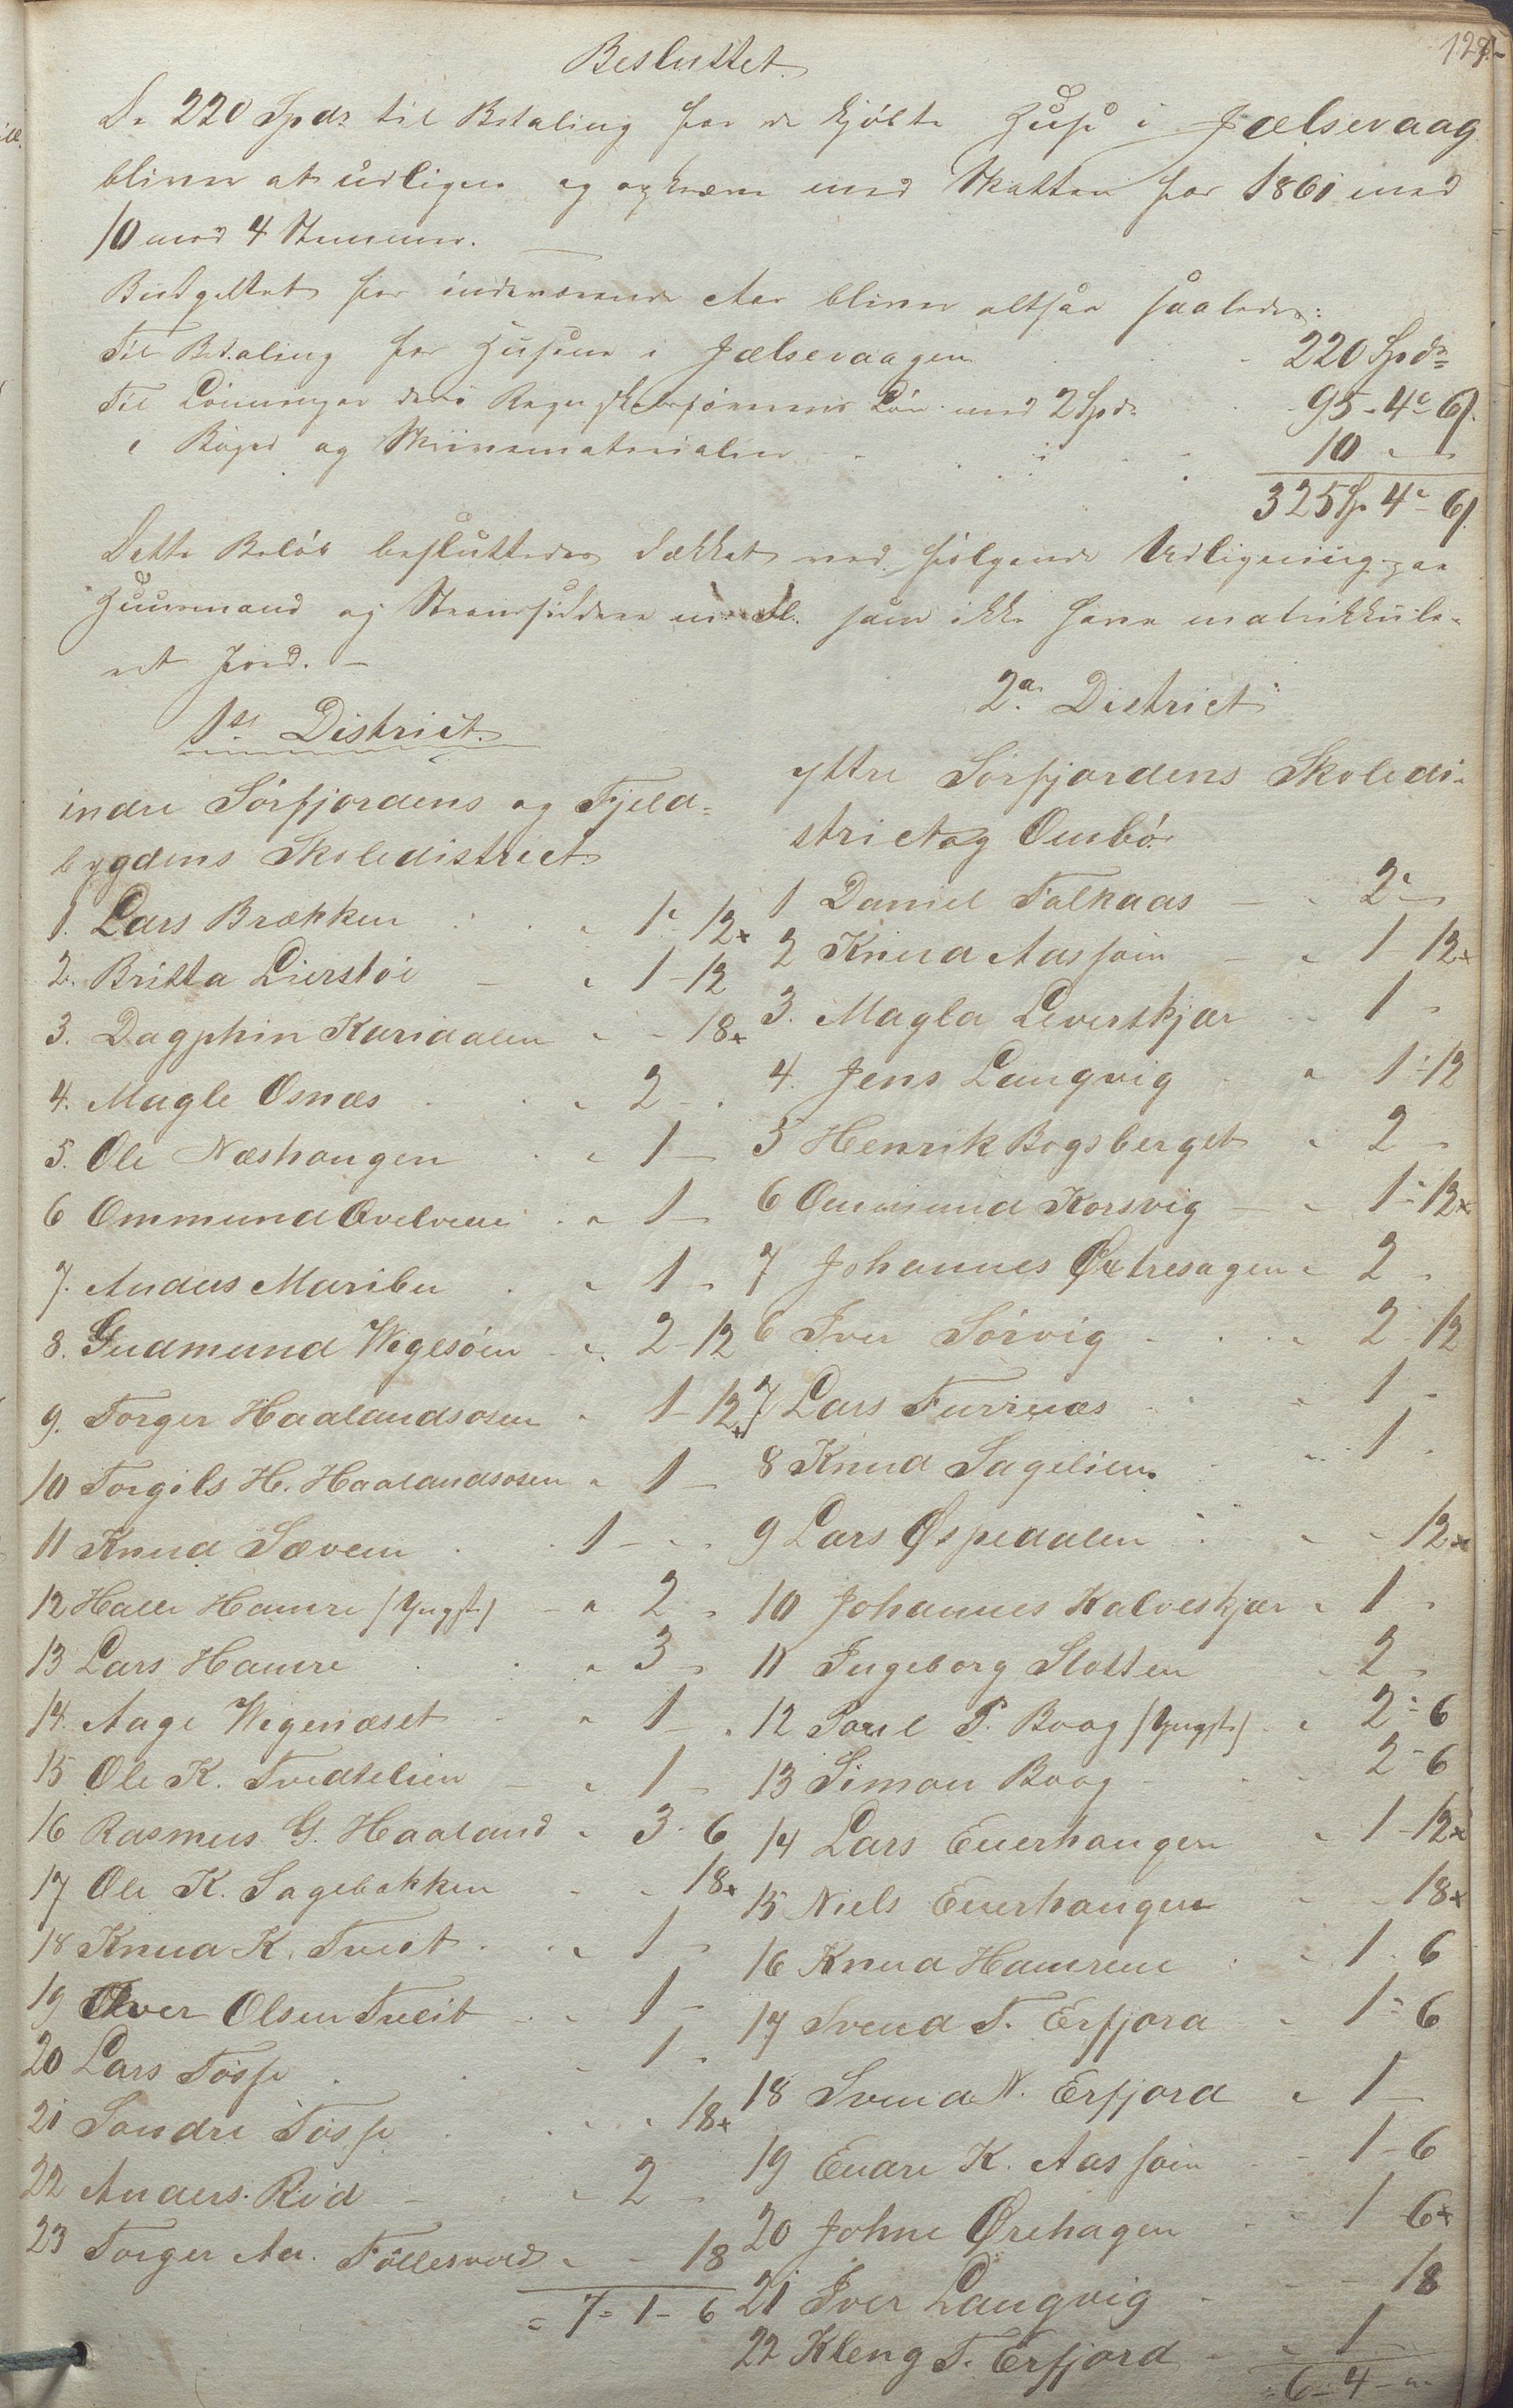 128.
Besluttet.
De 220 Spdr til Betaling for de kjøbte Huse i Jælsevaag
bliver at udligne og opkræve med Skatten for 1861 med
10 mod 4 Stemmer.
Budgettet for indeværende Aar bliver altsaa saaledes:
Til Betaling for Husene i Jælsevaagen 220 Spdr
Til Lønninger deri Regnskabsførerens Løn med 2 Spdr 95-4-6
Bøger og Skrivematerialier 10
325 Sp 4-6
Dette Beløb besluttedes dækket ved følgende Udligning paa
Huusmænd og Strandsiddere m. Fl. som ikke have matrikkule-
ret Jord. -
1ste District.
indre Sörfjordens og Fjeld-
bygdens Skoledistrict
1. Lars Brækken " 1-12x
2. Britta Lierstöi " 1-12
3. Dagphin Karidalen " - 18x
4. Magle Osnæs " 2 -
5. Ole Næshaugen " 1 -
6 Ommund Ovelvene " 1 -
7. Anders Maribu " 1 -
8. Gudmund Wegesöen " 2-12
9. Torger Haalandsosen " 1-12x
10 Torgils H. Haalandsosen " 1 -
11 Knud Sævem 1 - "
12 Halle Hamre (Yngste) " 2 -
13 Lars Hamre " 3 -
14. Aage Wegenæset " 1 -
15 Ole K. Tvedtelien " 1 -
16 Rasmus G. Haaland " 3-6
17 Ole K. Sagebakken " 18x
18 Knud K. Tveit " 1 -
19 Elver Olsen Tveit " 1 -
20 Lars Tösse " 1 -
21 Sondre Tösse " 18x
22 Anders Röd " 2 -
23 Torger Aa. Föllesvold " - 18
= 7-1-6
2det District
yttre Sörfjordens Skoledi-
strict og Ombö
1 Daniel Falkaas " 2 -
2 Knud Aasheim " 1-12x
3. Magla Leverskjær 1 -
4. Jens Langvig " 1-12
5 Henrik Bogsberget " 2 -
6 Ommund Korsvig " 1-12x
7 Johannes Øxtresagen " 2 -
6 Iver Sörvig " 2-12
7 Lars Furrnæs " 1 -
8 Knud Sagelien " 1 -
9 Lars Øspedalen " - 12x
10 Johannes Kalveskjær " 1 -
11 Ingeborg Slotten " 2 -
12 Poul P. Boag (Yngste) " 2-6
13 Simon Boag 2-6
14 Lars Euerhaugen " 1-12x
15 Niels Euerhaugen " - 18x
16 Knud Hamrene " 1-6
17 Svend T. Erfjord " 1-6
18 Svend N. Erfjord " 1 -
19 Endre K. Aasheim 1-6
20 Johne Ørehagen " 1 6x
21 Iver Langvig - 18
22 Kleng T. Erfjord " 1
= 6-4-"